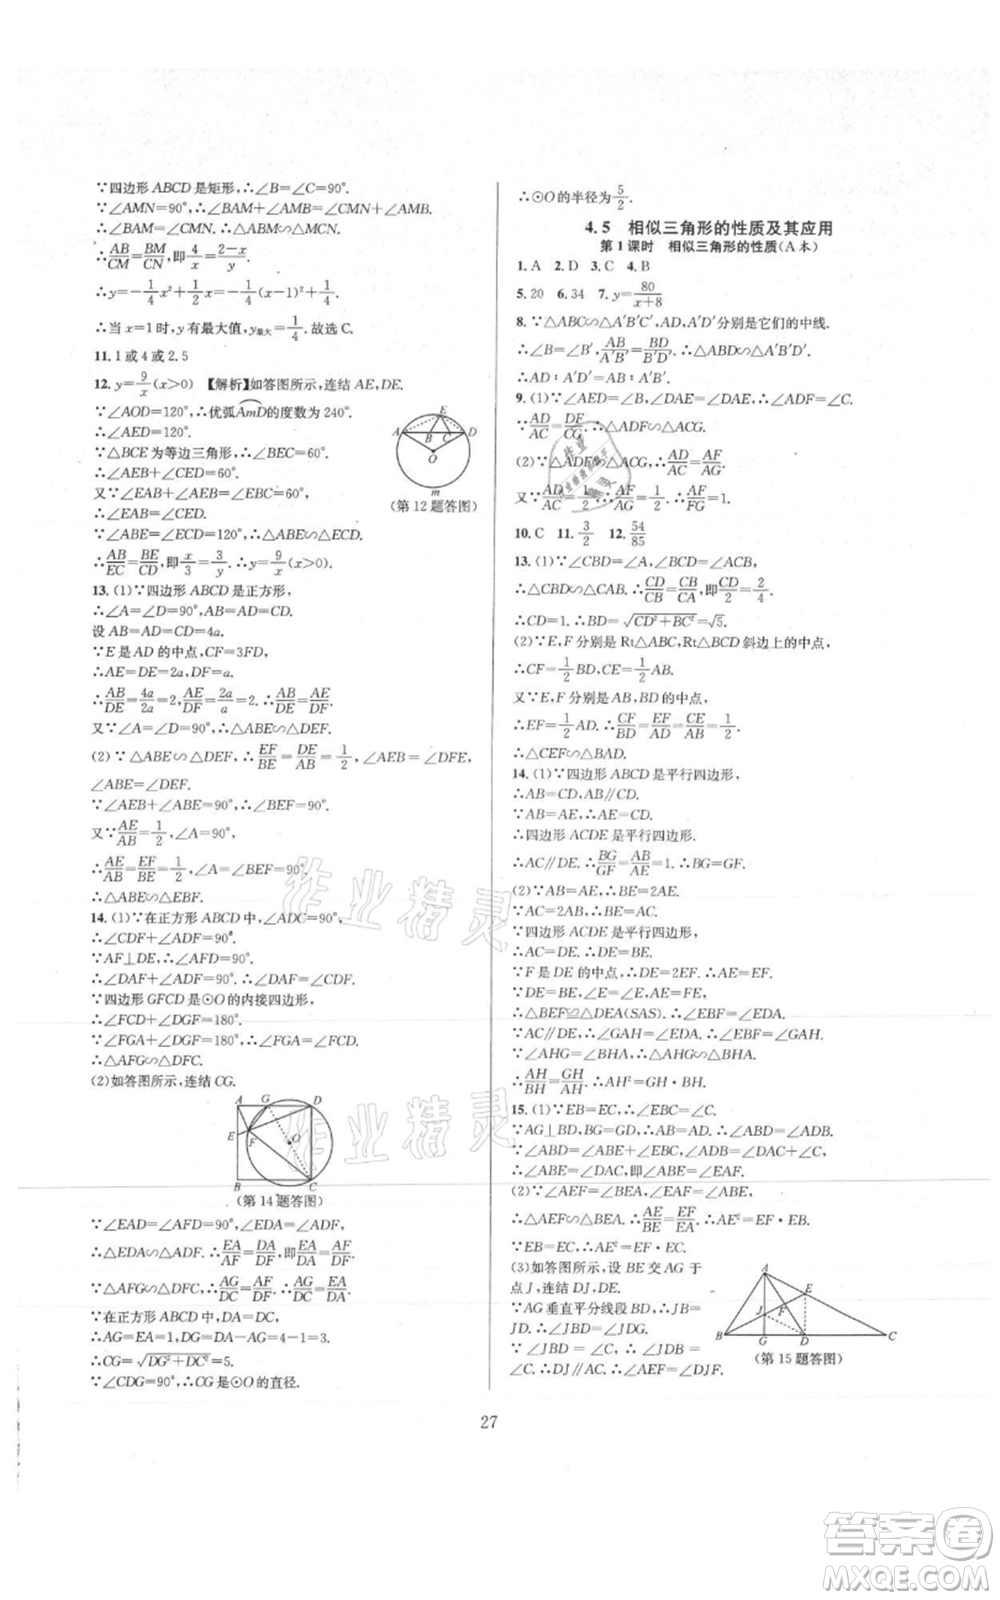 ∵四边形 ABCD 是矩形,∴∠B=∠C=90°.
∵∠AMN=90°,∴∠BAM+∠AMB=∠AMB+∠CMN=90°.
∴∠BAM=∠CMN.∴△ABM∽△MCN.
∴AB/CM=BM/CN,即4/x=(2-x)/y.
∴y=-1/4x²+1/2x=-1/4(x-1)²+1/4.
∴当 x=1时,y有最大值,y最大=1/4.故选 C.
11. 1 或 4 或 2.5
12. y=9/x(x>0) 【解析】如答图所示,连结 AE,DE.
∵∠AOD=120°,∴优弧AmD的度数为 240°.
∴∠AED=120°.
∵△BCE为等边三角形,∴∠BEC=60°.
∴∠AEB+∠CED=60°.
又∵∠EAB+∠AEB=∠EBC=60°,
∴∠EAB=∠CED.
∵∠ABE=∠ECD=120°,∴△ABE∽△ECD.
∴AB/EC=BE/CD,即x/3=3/y.∴y=9/x(x>0).
A B C D E O m
(第 12 题答图)
13. (1)∵四边形 ABCD 是正方形,
∴∠A=∠D=90°,AB=AD=CD.
设 AB=AD=CD=4a.
∵E 是 AD 的中点,CF=3FD,
∴AE=DE=2a,DF=a.
∴AB/DE=4a/2a=2,AE/DF=2a/a=2.∴AB/DE=AE/DF.
又∵∠A=∠D=90°,∴△ABE∽△DEF.
(2)∵△ABE∽△DEF,∴EF/BE=DE/AB=1/2,∠AEB=∠DFE,
∠ABE=∠DEF.
∵∠AEB+∠ABE=90°,∴∠BEF=90°.
又∵AE/AB=1/2,∠A=90°,
∴AE/AB=EF/BE=1/2,∠A=∠BEF=90°.
∴△ABE∽△EBF.
14. (1)∵在正方形 ABCD 中,∠ADC=90°,
∴∠CDF+∠ADF=90°.
∵AF⊥DE,∴∠AFD=90°.
∴∠DAF+∠ADF=90°.∴∠DAF=∠CDF.
∵四边形 GFCD 是⊙O 的内接四边形,
∴∠FCD+∠DGF=180°.
∵∠FGA+∠DGF=180°,∴∠FGA=∠FCD.
∴△AFG∽△DFC.
(2)如答图所示,连结 CG.
A G D E F O B C
(第 14 题答图)
∵∠EAD=∠AFD=90°,∠EDA=∠ADF,
∴△EDA∽△ADF.∴EA/AF=DA/DF,即EA/DA=AF/DF.
∵△AFG∽△DFC,∴AG/DC=AF/DF.∴AG/DC=EA/DA.
∵在正方形 ABCD 中,DA=DC,
∴AG=EA=1,DG=DA-AG=4-1=3.
∴CG=√(DG²+DC²)=5.
∵∠CDG=90°,∴CG 是⊙O 的直径.
∴⊙O 的半径为5/2.
4.5 相似三角形的性质及其应用
第 1 课时 相似三角形的性质(A 本)
1. A 2. D 3. C 4. B
5. 20 6. 34 7. y=80/(x+8)
8. ∵△ABC∽△A′B′C′,AD,A′D′分别是它们的中线.
∴∠B=∠B′,AB/A′B′=BD/B′D′.∴△ABD∽△A′B′D′.
∴AD∶A′D′=AB∶A′B′.
9. (1)∵∠AED=∠B,∠DAE=∠DAE,∴∠ADF=∠C.
∵AD/AC=DF/CG,∴△ADF∽△ACG.
(2)∵△ADF∽△ACG,∴AD/AC=AF/AG.
又∵AD/AC=1/2,∴AF/AG=1/2.∴AF/FG=1.
10. C 11. 3/2 12. 54/85
13. (1)∵∠CBD=∠A,∠DCB=∠BCA,
∴△CBD∽△CAB.∴CD/CB=CB/CA,即CD/2=2/4.
∴CD=1.∴BD=√(CD²+BC²)=√5.
(2)∵E,F 分别是 Rt△ABC,Rt△BCD 斜边上的中点,
∴CF=1/2BD,CE=1/2AB.
又∵E,F 分别是 AB,BD 的中点,
∴EF=1/2AD.∴CF/BD=EF/AD=CE/AB=1/2.
∴△CEF∽△BAD.
14. (1)∵四边形 ABCD 是平行四边形,
∴AB=CD,AB∥CD.
∵AB=AE,∴AE=CD.
∴四边形 ACDE 是平行四边形.
∴AC∥DE.∴BG/GF=AB/AE=1.∴BG=GF.
(2)∵AB=AE,∴BE=2AE.
∵AC=2AB,∴BE=AC.
∵四边形 ACDE 是平行四边形,
∴AC=DE.∴DE=BE.
∵F 是 DE 的中点,∴DE=2EF.∴AE=EF.
∵DE=BE,∠E=∠E,AE=EF,
∴△BEF≌△DEA(SAS).∴∠EBF=∠EDA.
∵AC∥DE,∴∠GAH=∠EDA.∴∠EBF=∠GAH.
∵∠GHA=∠AHB,∴△AGH∽△BHA.
∴AH/BH=GH/AH.∴AH²=GH·BH.
15. (1)∵EB=EC,∴∠EBC=∠C.
∵AG⊥BD,BG=GD,∴AB=AD.∴∠ABD=∠ADB.
∵∠ABD=∠ABE+∠EBC,∠ADB=∠DAC+∠C,
∴∠ABE=∠DAC,即∠ABE=∠EAF.
(2)∵∠AEF=∠BEA,∠EAF=∠ABE,
∴△AEF∽△BEA.∴AE/BE=EF/EA.∴AE²=EF·EB.
∵EB=EC,∴AE²=EF·EC.
(3)如答图所示,设 BE 交 AG 于
点 J,连结 DJ,DE.
∵AG 垂直平分线段 BD,∴JB=
JD.∴∠JBD=∠JDG.
∵∠JBD=∠C,∴∠JDB=
∠C.∴DJ∥AC.∴∠AEF=
A J F E B G D C
(第 15 题答图)
27
作业精灵
作业精灵
答案卷
MXQE.COM